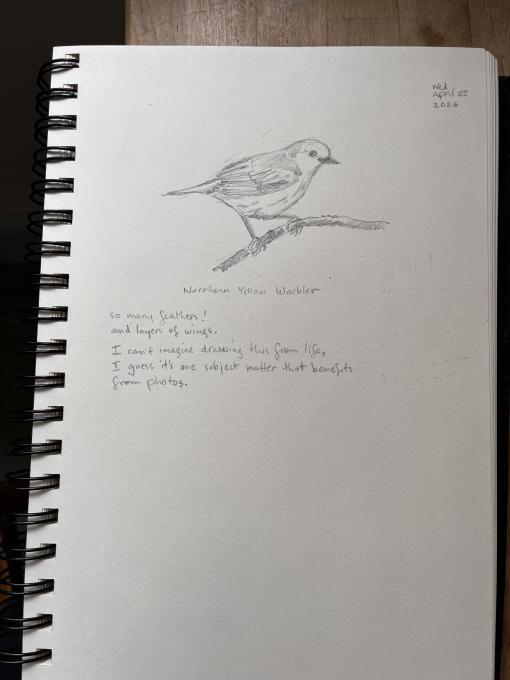 Wed
April 22
2026
Northern Yellow Warbler
so many feathers!
and layers of wings.
I can't imagine drawing this from life,
I guess it's one subject matter that benefits
from photos.